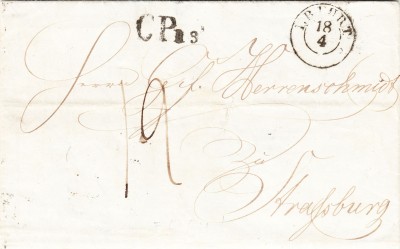 C.P.R.3
ERFURT
18
4
Herrn Herrenschmidt
Zu
Strassburg